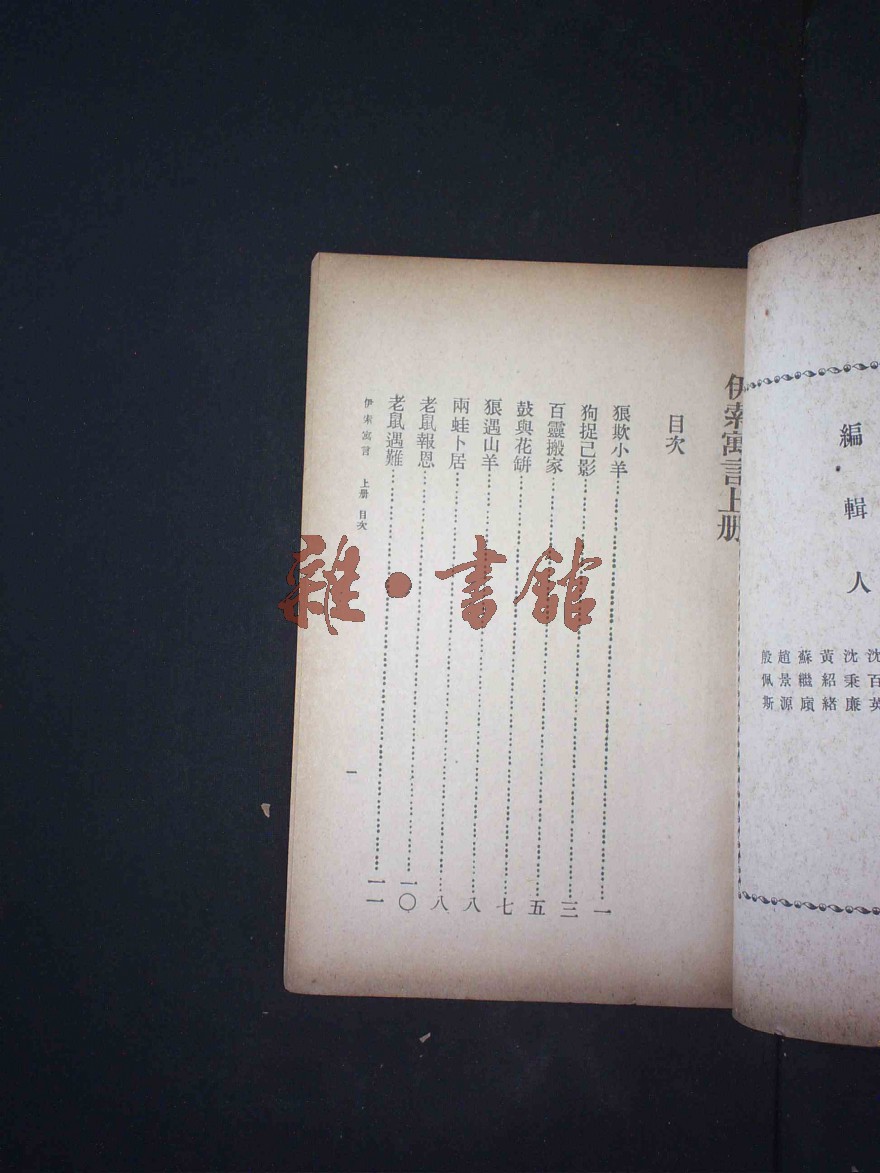 編輯人
沈百英
沈秉廉
黃紹緒
蘇繼廎
趙景源
殷佩斯
伊索寓言上册
目次
狼欺小羊 一
狗捉己影 三
百靈搬家 五
鼓與花缾 七
狼遇山羊 八
兩蛙卜居 八
老鼠報恩 一〇
老鼠遇難 一一
伊索寓言 上册 目次
一
雜·書館